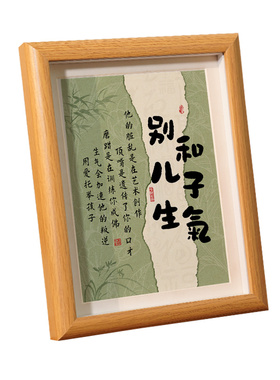 别和
儿子
生氣
他的脏乱是在艺术创作
顶嘴是遗传了你的口才
磨蹭是在训练你成佛
生气会加速他的叛逆
用爱托举孩子